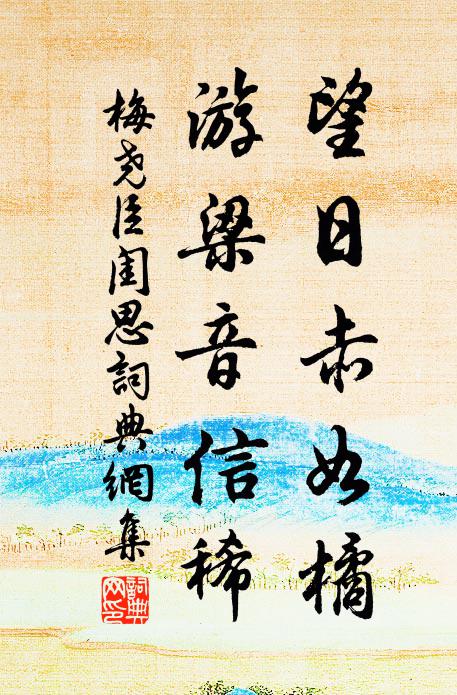 望日赤如橘
游梁音信稀
梅尧臣闺思詞典網集
詞典